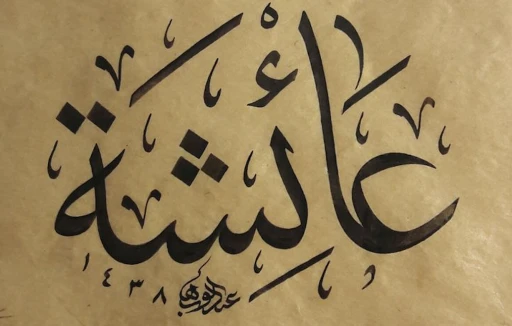 عائشة
عبدالوهاب ١٤٣٨